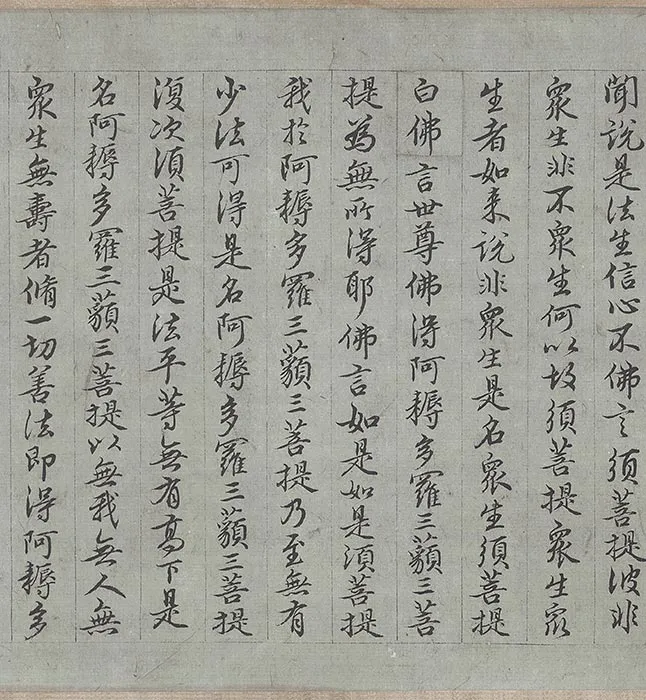 聞説是法生信心不佛言須菩提彼非
衆生非不衆生何以故須菩提衆生衆
生者如来説非衆生是名衆生須菩提
白佛言世尊佛得阿耨多羅三藐三菩
提為無所得耶佛言如是如是須菩提
我於阿耨多羅三藐三菩提乃至無有
少法可得是名阿耨多羅三藐三菩提
復次須菩提是法平等無有髙下是
名阿耨多羅三藐三菩提以無我無人無
衆生無壽者脩一切善法即得阿耨多